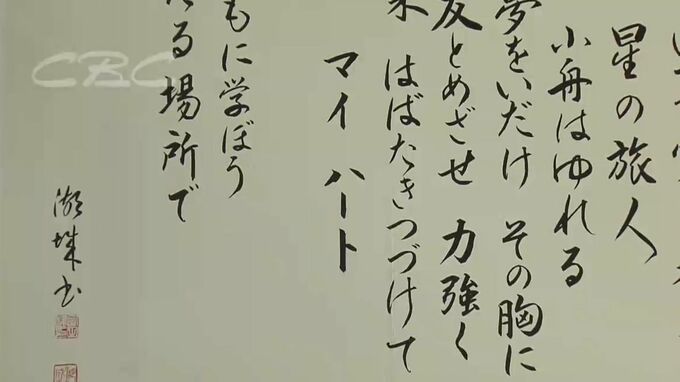 星の旅人
小舟はゆれる
夢をいだけ その胸に
友とめざせ 力強く
はばたきつづけて
マイ ハート
もに学ぼう
る場所で
湖城書
CBC